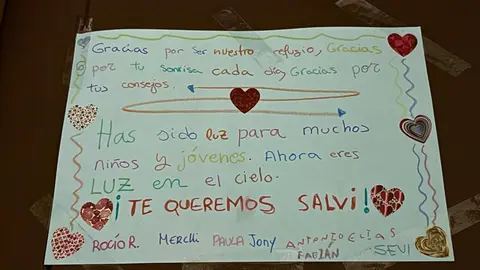 Gracias por ser nuestro refuzio, Gracias
por tu sonrisa cada día, Gracias por
tus consejos.
Has sido luz para muchos
niños y jóvenes. Ahora eres
LUZ en el cielo.
¡TE QUEREMOS SALVI!
ROCÍO R. MERCHI PAULA JONY ANTONIO ELIAS
FABIÁN SEVI